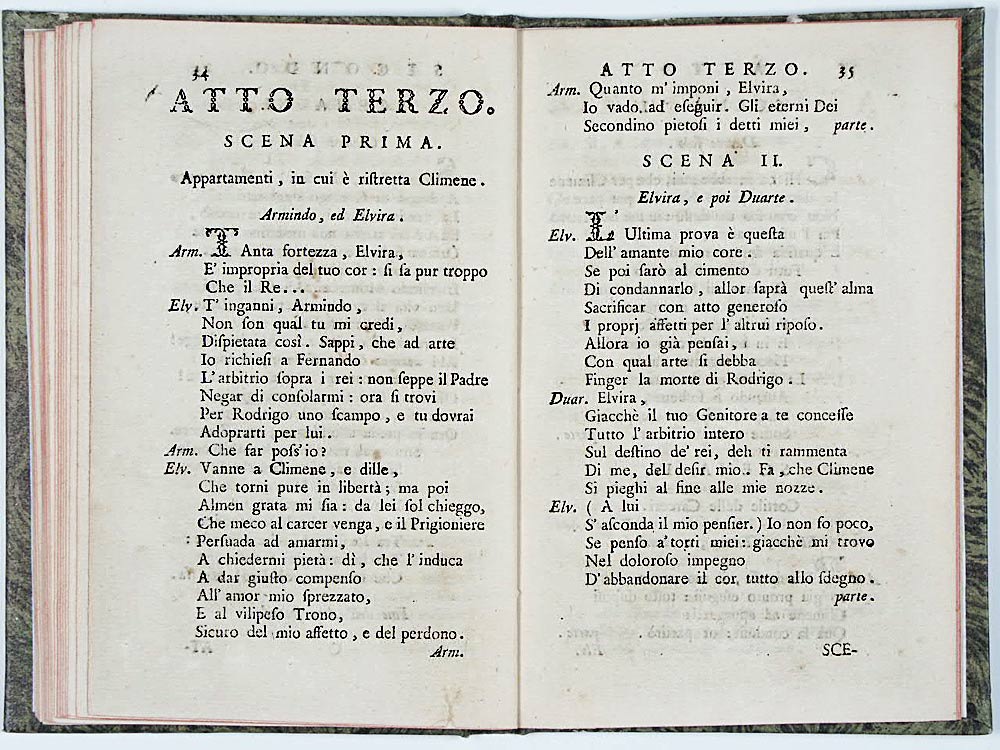 34
ATTO TERZO.
SCENA PRIMA.
Appartamenti, in cui è riſtretta Climene.
Armindo, ed Elvira.
Arm. TAnta fortezza, Elvira,
E' impropria del tuo cor: ſi ſa pur troppo
Che il Re...
Elv. T' inganni, Armindo,
Non ſon qual tu mi credi,
Diſpietata così. Sappi, che ad arte
Io richieſi a Fernando
L'arbitrio ſopra i rei: non ſeppe il Padre
Negar di conſolarmi: ora ſi trovi
Per Rodrigo uno ſcampo, e tu dovrai
Adoprarti per lui.
Arm. Che far poſs'io?
Elv. Vanne a Climene, e dille,
Che torni pure in libertà; ma poi
Almen grata mi ſia: da lei ſol chieggo,
Che meco al carcer venga, e il Prigioniere
Perſuada ad amarmi,
A chiedermi pietà: dì, che l'induca
A dar giuſto compenſo
All' amor mio ſprezzato,
E al vilipeſo Trono,
Sicuro del mio affetto, e del perdono.
Arm.
ATTO TERZO. 35
Arm. Quanto m' imponi, Elvira,
Io vado ad eſeguir. Gli eterni Dei
Secondino pietoſi i detti miei, parte.
SCENA II.
Elvira, e poi Duarte.
Elv. L' Ultima prova è queſta
Dell' amante mio core.
Se poi ſarò al cimento
Di condannarlo, allor ſaprà queſt' alma
Sacrificar con atto generoſo
I proprj affetti per l' altrui ripoſo.
Allora io già penſai,
Con qual arte ſi debba
Finger la morte di Rodrigo.
Duar. Elvira,
Giacchè il tuo Genitore a te conceſſe
Tutto l' arbitrio intero
Sul deſtino de' rei, deh ti rammenta
Di me, del deſir mio. Fa, che Climene
Si pieghi al fine alle mie nozze.
Elv. ( A lui
S' aſconda il mio penſier.) Io non fo poco,
Se penſo a' torti miei: giacchè mi trovo
Nel doloroſo impegno
D' abbandonare il cor tutto allo ſdegno.
parte.
SCE-